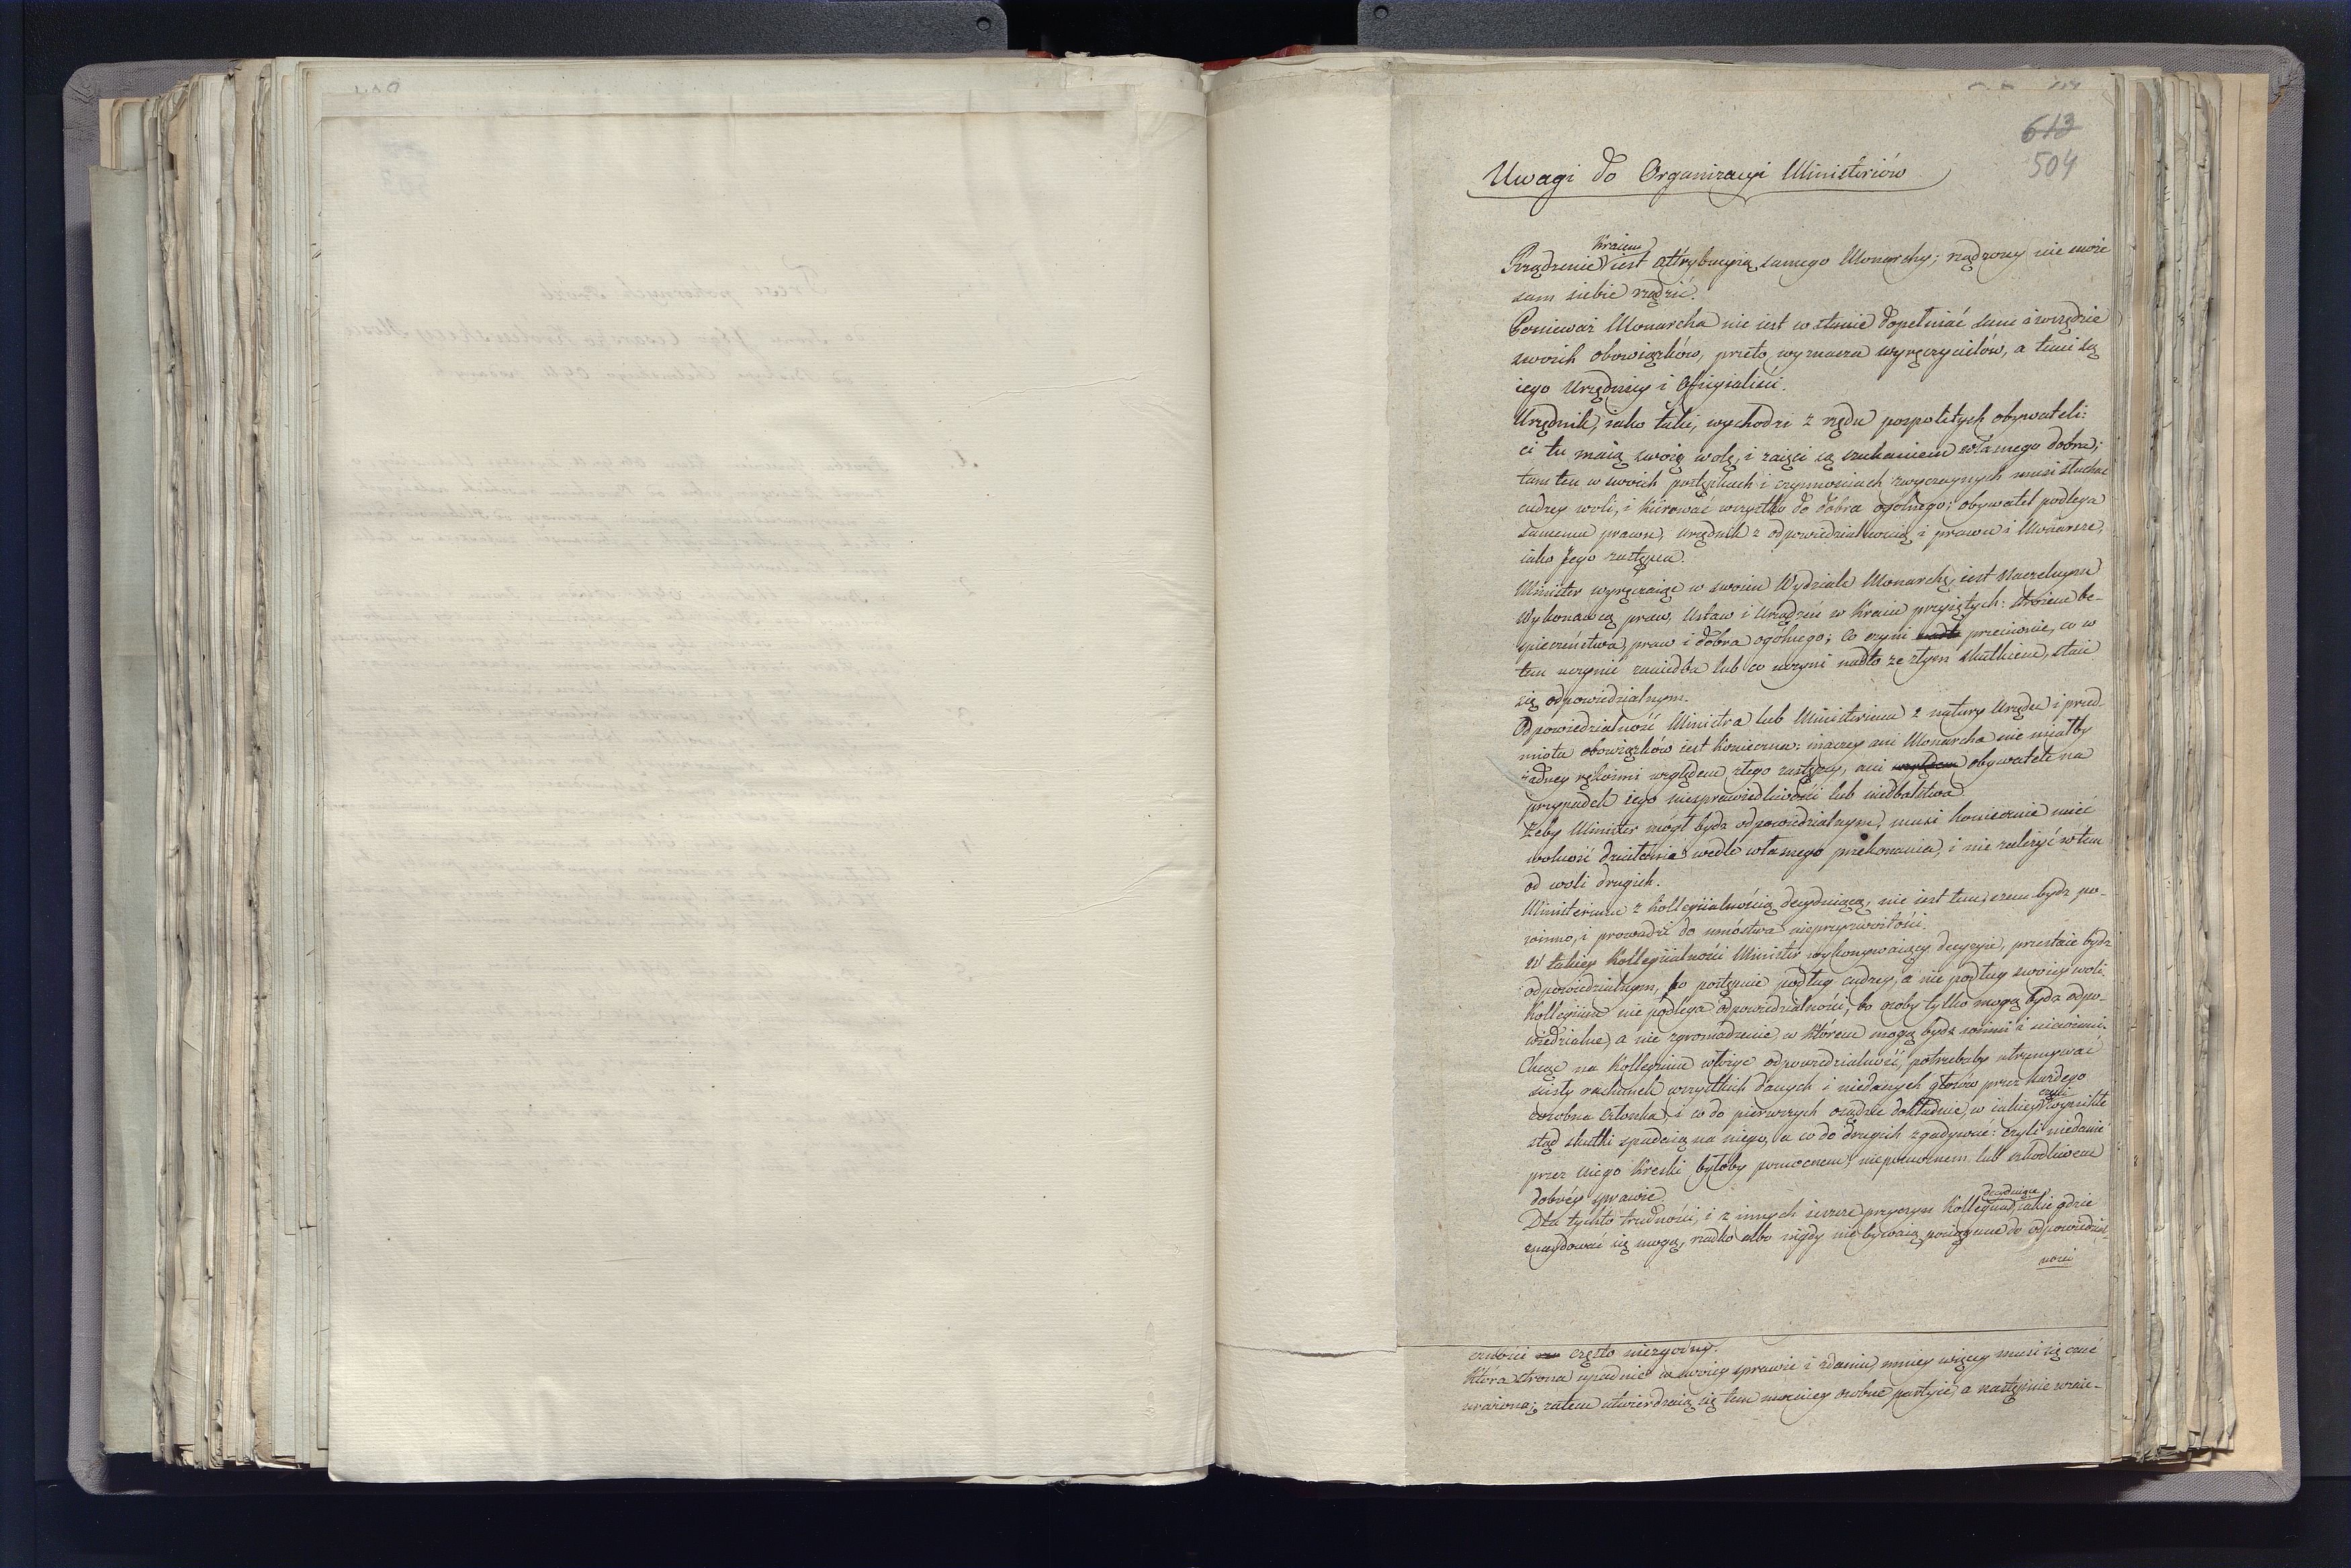 613
504
Uwagi do Organizacyi Ministeriów
Kraiem
Rządzenie iest attrybucyią samego Monarchy; rządzony nie może
sam siebie rządzić.
Ponieważ Monarcha nie iest w stanie dopełniać sam i wszędzie
swoich obowiązków, przeto wyznacza wyręczycielów, a temi są
iego Urzędnicy i Officyaliści.
Urzędnik, iako taki, wychodzi z rzędu pospolitych obywateli:
ci tu maią swoię wolę, i zaięci są szukaniem własnego dobra;
tamten w swoich postępkach i czynnościach zwyczaynych musi słuchać
cudzey woli, i kierować wszystko do dobra ogólnego; obywatel podlega
samemu prawu, urzędnik z odpowiedzialnością i prawu i Monarsze,
iako Jego zastępca.
Minister wyręczaiąc w swoim Wydziale Monarchę, iest Naczelnym
Wykonawcą praw, Ustaw i Urządzeń w Kraiu przyiętych: stróżem be-
spieczeństwa, praw i dobra ogólnego; Co czyni przeciwnie, co w
tem uczynić zaniedba lub co uczyni nadto ze złym skutkiem, staie
się odpowiedzialnym.
Odpowiedzialność Ministra lub Ministerium z natury Urzędu i przed-
miotu obowiązków iest konieczna: inaczey ani Monarcha nie miałby
żadney rękoimi względem złego zastępcy, ani obywatele na
przypadek iego niesprawiedliwości lub niedbalstwa.
Żeby Minister mógł bydź odpowiedzialnym, musi koniecznie mieć
wolność działania wedle własnego przekonania, i nie zależyć w tem
od woli drugich.
Ministerium z Kollegiialnością decyduiącą, nie iest tem, czem bydź po-
winno, i prowadzi do mnóstwa nieprzyzwoitości.
W takiey Kollegiialności Minister wykonywaiący decyzyie, przestaie bydź
odpowiedzialnym, bo postępuie podług cudzey, a nie podług swoiey woli.
Kollegium nie podlega odpowiedzialności, bo osoby tylko mogą bydź odpo-
wiedzialne, a nie zgromadzenie, w którem mogą bydź winni i niewinni.
Chcąc na Kollegium włożyć odpowiedzialność, potrzebaby utrzymywać
ścisły rachunek wszystkich danych i niedanych głosów przez każdego
zosobna Członka, i co do pierwszych osądzić dokładnie, w iakiey części wynikłe
stąd skutki spadaią na niego, a co do drugich zgadywać: czyli niedanie
przez niego kreski byłoby pomocnem, niepomocnem lub szkodliwem
dobréy sprawie.
Dla tychto trudności, i z innych ieszcze przyczyn Kollegia decyduiące, iakie gdzie
znaydować się mogą, rzadko albo nigdy nie bywaią pociągane do odpowiedzial-
ności
często niezgodny.
Która strona upadnie w swoiey sprawie i zdaniu, mniey więcey musi się czuć
urażona; zatem utwierdzaią się tem mocniey osobne partyie, a następnie wznie-